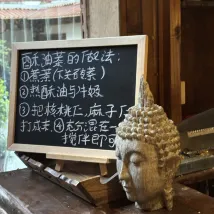 酥油茶的做法:
①熬茶(下关砖茶)
②熬酥油与牛奶
③把核桃仁,麻子仁
打成末,④充分混在一
搅拌即可